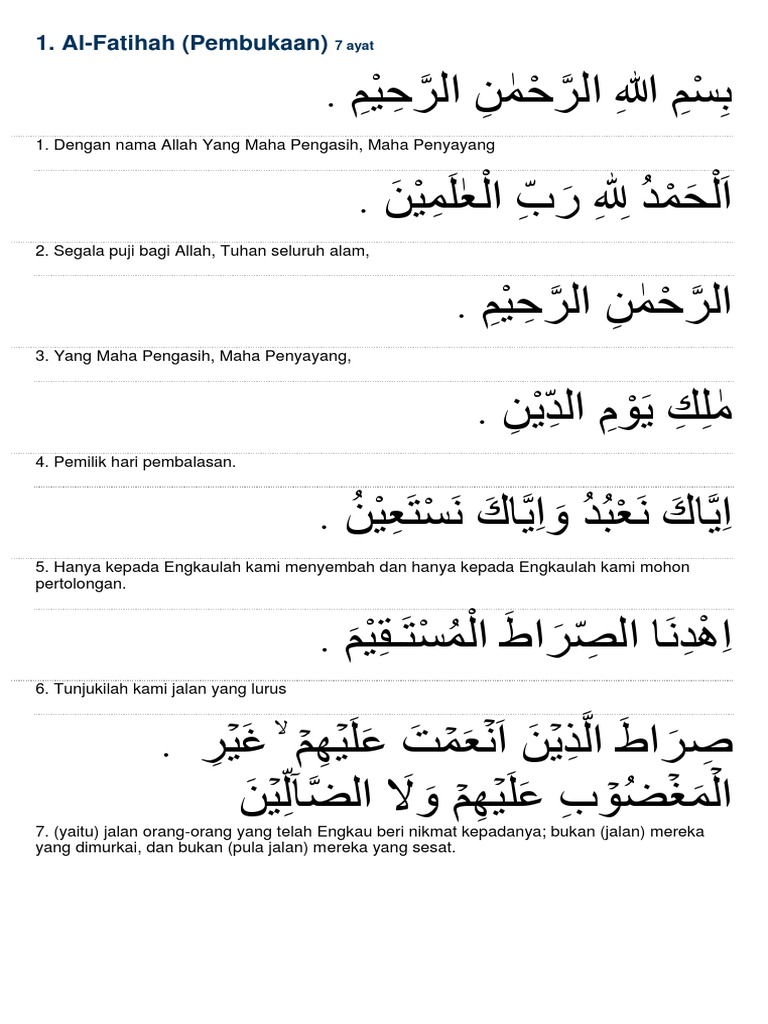 1. Al-Fatihah (Pembukaan) 7 ayat
بِسْمِ اللهِ الرَّحْمٰنِ الرَّحِيْمِ .
1. Dengan nama Allah Yang Maha Pengasih, Maha Penyayang
اَلْحَمْدُ لِلّٰهِ رَبِّ الْعٰلَمِيْنَ .
2. Segala puji bagi Allah, Tuhan seluruh alam,
الرَّحْمٰنِ الرَّحِيْمِ .
3. Yang Maha Pengasih, Maha Penyayang,
مٰلِكِ يَوْمِ الدِّيْنِ .
4. Pemilik hari pembalasan.
اِيَّاكَ نَعْبُدُ وَاِيَّاكَ نَسْتَعِيْنُ .
5. Hanya kepada Engkaulah kami menyembah dan hanya kepada Engkaulah kami mohon
pertolongan.
اِهْدِنَا الصِّرَاطَ الْمُسْتَقِيْمَ .
6. Tunjukilah kami jalan yang lurus
صِرَاطَ الَّذِيْنَ اَنْعَمْتَ عَلَيْهِمْ ۙ غَيْرِ .
الْمَغْضُوْبِ عَلَيْهِمْ وَلَا الضَّآلِّيْنَ
7. (yaitu) jalan orang-orang yang telah Engkau beri nikmat kepadanya; bukan (jalan) mereka
yang dimurkai, dan bukan (pula jalan) mereka yang sesat.